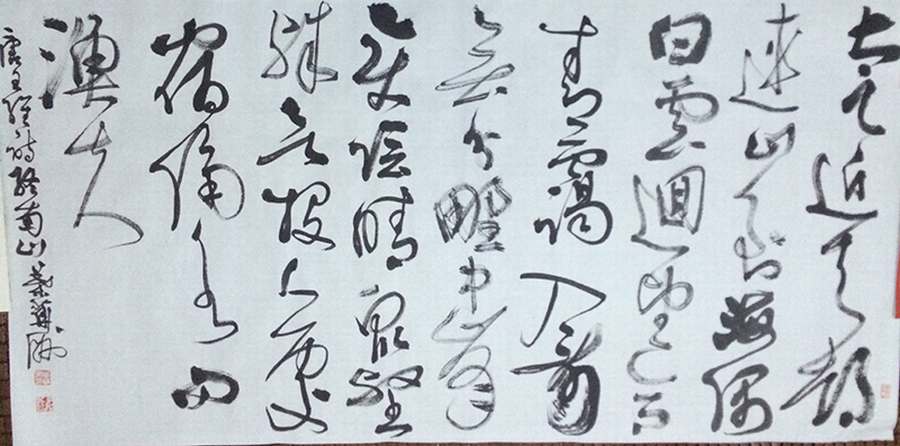 太乙近天都
連山到海隅
白雲迴望合
青靄入看
無分野中峰
變陰晴衆壑
殊欲投人處
宿隔水問
漁夫
唐王維詩終南山 葉